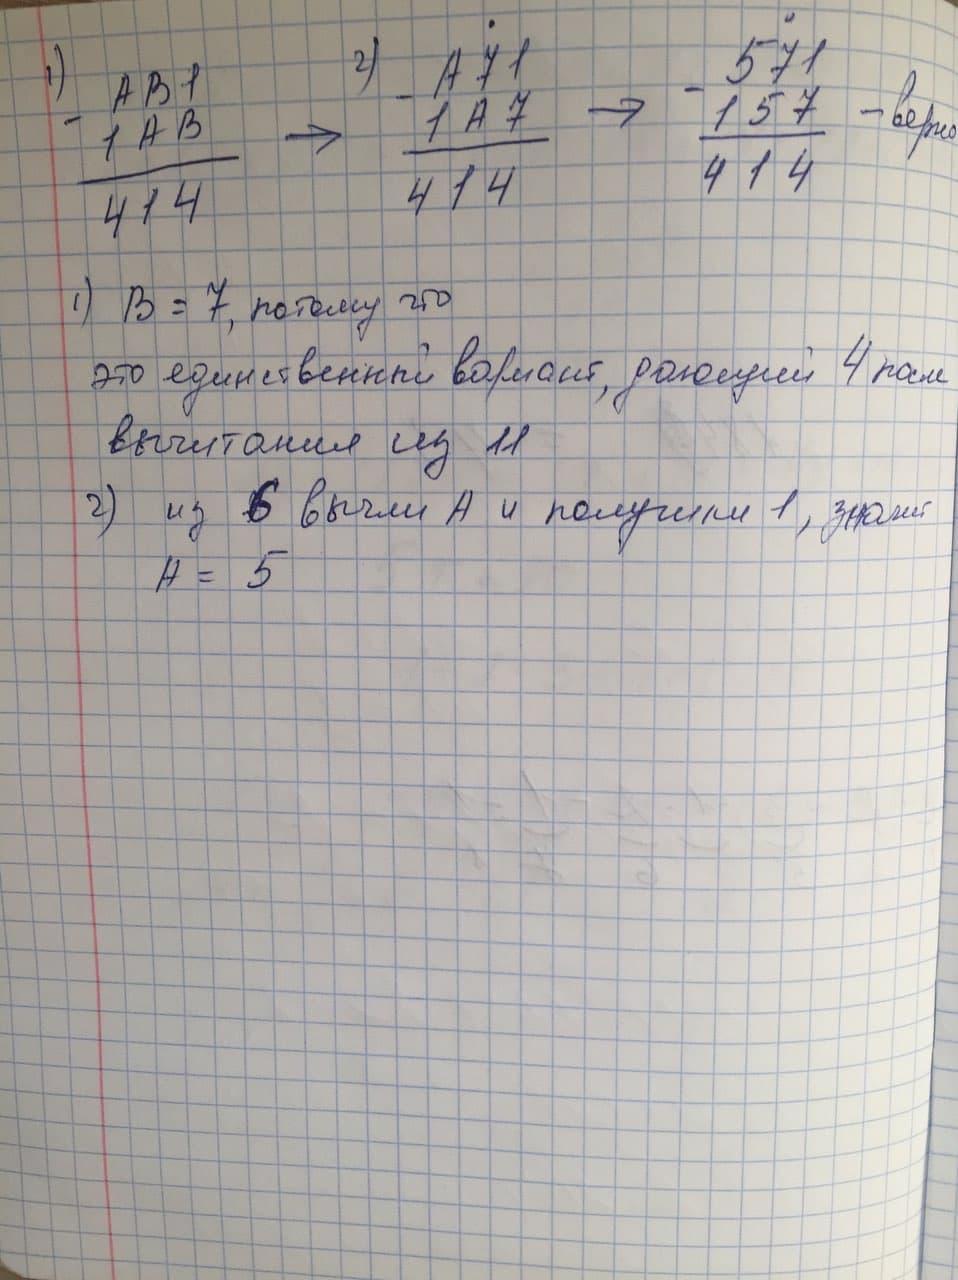 1) AB1 2) A71 571
- 1AB → - 1A7 → - 157 - верно
414 414 414
1) B = 7, потому что
это единственный вариант, дающий 4 после
вычитания из 11
2) из 6 вычли A и получили 1, значит
A = 5